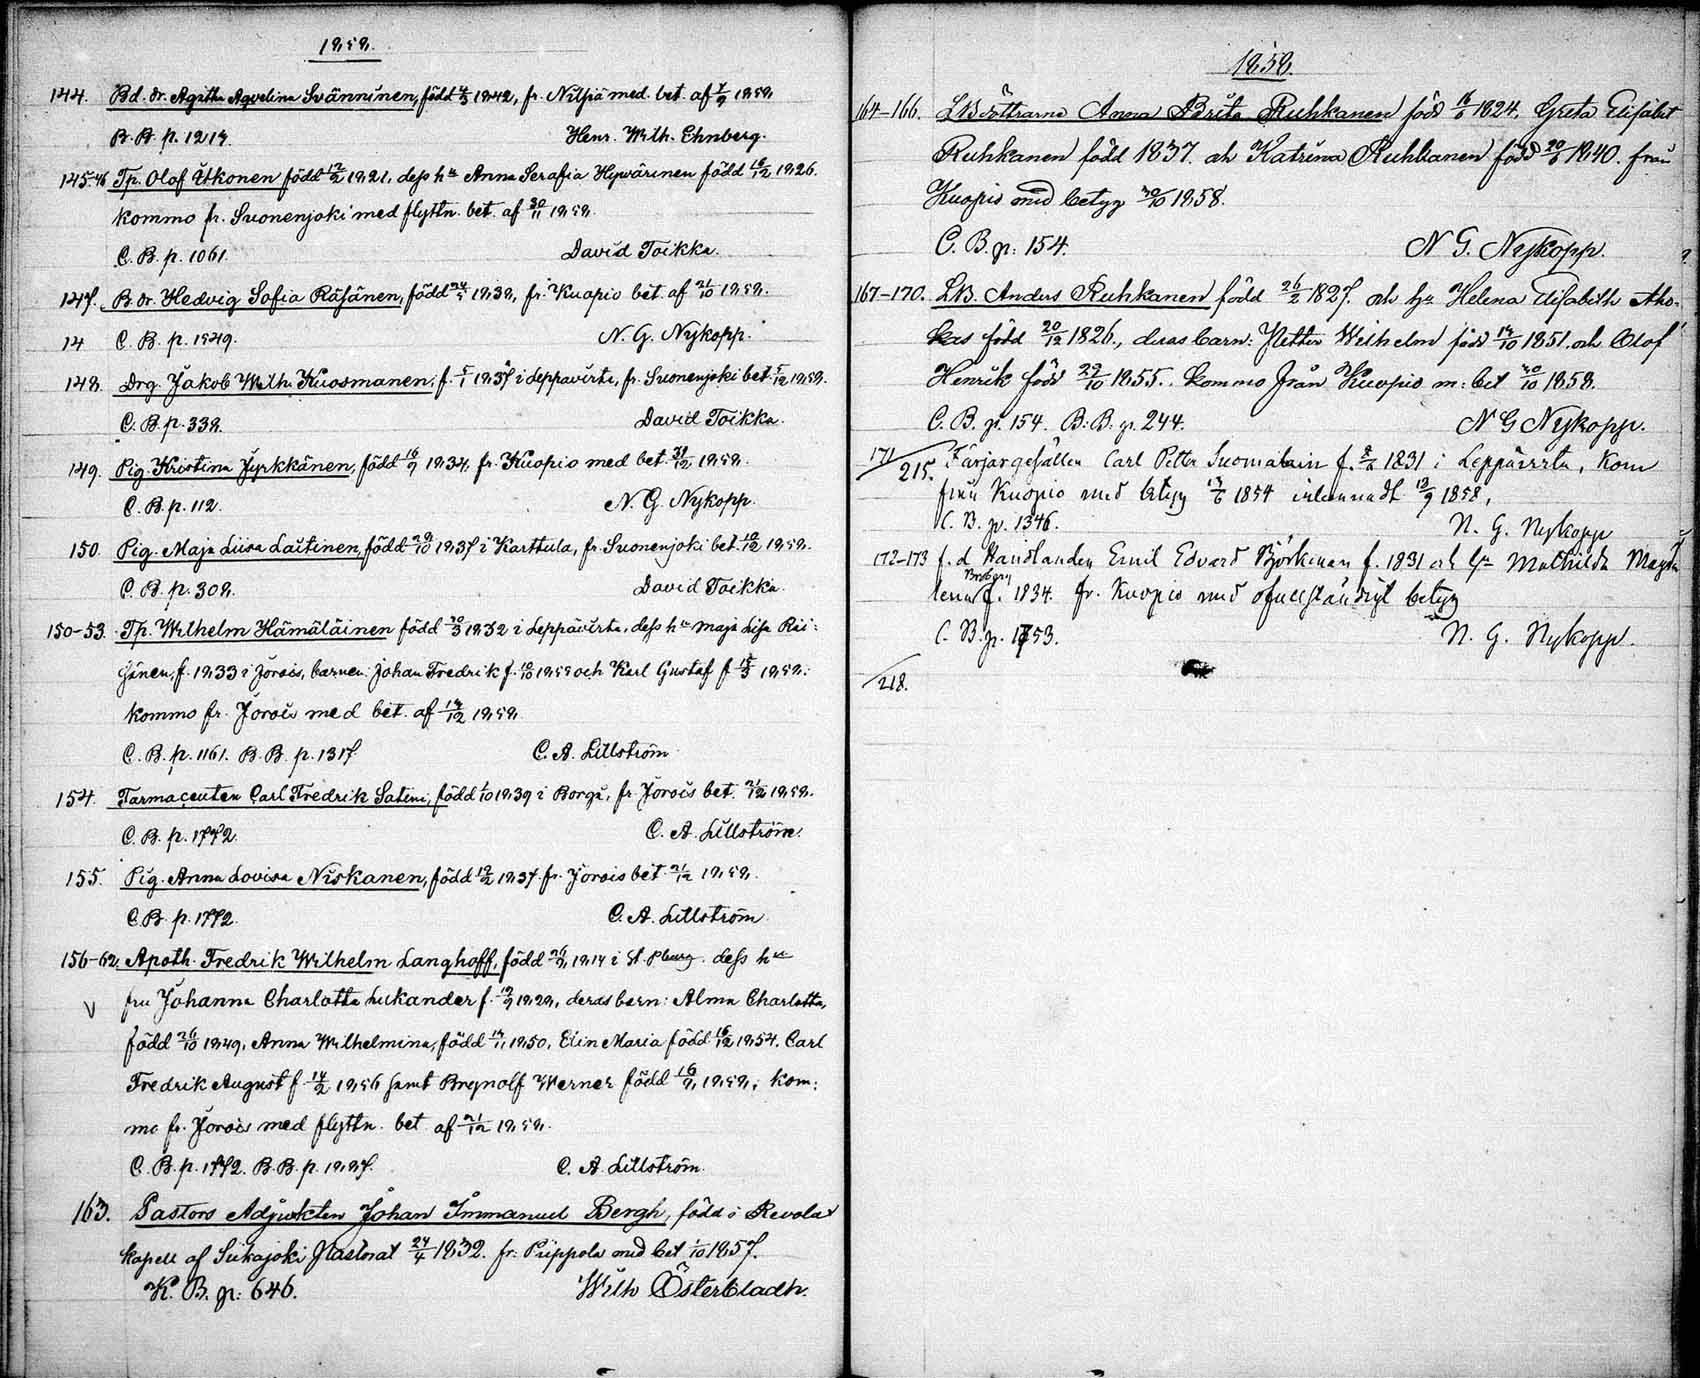 1858.
144. Bd. dr. Agatha Aqvelina Svänninen, född 4/3 1842, fr. Nilsiä med. bet. af 1858
B.B. p. 1214. Henr. Wilh. Ehnberg.
145-46 Tp. Olof Itkonen född 12/2 1821, dess hu Anna Serafia Hyvärinen född 16/12 1826.
kommo fr. Suonenjoki med flyttn. bet. af 30/11 1858.
C.B. p. 1061. David Toikka.
147. B. dr. Hedvig Sofia Räsänen, född 1838, fr. Kuopio bet. af 21/10 1858.
14 C.B. p. 1549. N. G. Nykopp.
148. Drg. Jakob Wilh. Kuosmanen, f. 5/1 1837 i Leppävirta, fr. Suonenjoki bet. 5/12 1858.
C.B. p. 338. David Toikka.
149. Pig. Kristina Jyrkkänen, född 16/9 1834, fr. Kuopio med bet. 31/12 1858.
C.B. p. 112. N. G. Nykopp.
150. Pig. Maja Liisa Laitinen, född 28/10 1837 i Karttula, fr. Suonenjoki bet. 18/12 1858.
C.B. p. 308. David Toikka.
150-53. Tp. Wilhelm Hämäläinen född 30/3 1832 i Leppävirta, dess hu Maja Lisa Räi:
sänen, f. 1833 i Jorois, barnen: Johan Fredrik f. 18/10 1855 och Karl Gustaf f 15/3 1858:
kommo fr. Jorois med bet. af 14/12 1858.
C.B. p. 1161. B.B. p. 1317. C. A. Lillström
154. Farmaceuten Carl Fredrik Satini, född 1/10 1839 i Borgå, fr. Jorois bet. 21/12 1858.
C.B. p. 1772. C. A. Lillström.
155. Pig. Anna Lovisa Niskanen, född 18/2 1837. fr. Jorois bet 21/12 1858.
C.B. p. 1772. C. A. Lillström
156-62. Apoth. Fredrik Wilhelm Langhoff, född 1814 i St. Pburg. dess hu
V fru Johanna Charlotta Lukander f. 18/9 1828, deras bern: Alma Charlotta,
född 26/10 1849, Anna Wilhelmina, född 14/11 1850, Elin Maria född 16/12 1854. Carl
Fredrik August f 14/2 1856 samt Brynolf Werner född 1858; kom:
mo fr. Jorois med flyttn. bet af 21/12 1858.
C.B. p. 1772. B.B. p. 1887. C. A. Lillström.
163. Pastors Adjunkten Johan Immanuel Bergh, född i Revolax
kapell af Siikajoki Pastorat 24/4 1832. fr: Piippola med bet 1/10 1857.
K. B. p: 646. Wilh Österbladh.
1858.
164-166. LBdöttrarna Anna Brita Ruhkanen född 1824, Greta Elisabet
Ruhkanen född 1837. och Katrina Ruhkanen född 20/6 1840. från
Kuopio med betyg 30/10 1858.
C. B. p: 154. N G. Nykopp.
167-170. LB. Anders Ruhkanen född 26/2 1827. och hu Helena Elisabeth Aho-
kas född 20/12 1826., deras barn: Petter Wilhelm född 14/10 1851. och Olof
Henrik född 29/10 1855. kommo från Kuopio m: bet 30/10 1858.
C. B. p. 154. B. B. p. 244. N G Nykopp.
171/215. Färjargesällen Carl Petter Suomalain f. 1831 i Leppävirta, kom
från Kuopio med betyg 1854 inlemnadt 13/9 1858,
C. B. p. 1346. N. G. Nykopp
172-173 f. d. Handlanden Emil Edvard Björkman f. 1831 och hu Mathilda Magda
Broberg
lena f. 1834. fr. Kuopio med ofullständigt betyg
C. B. p. 1753. N. G. Nykopp.
/218.